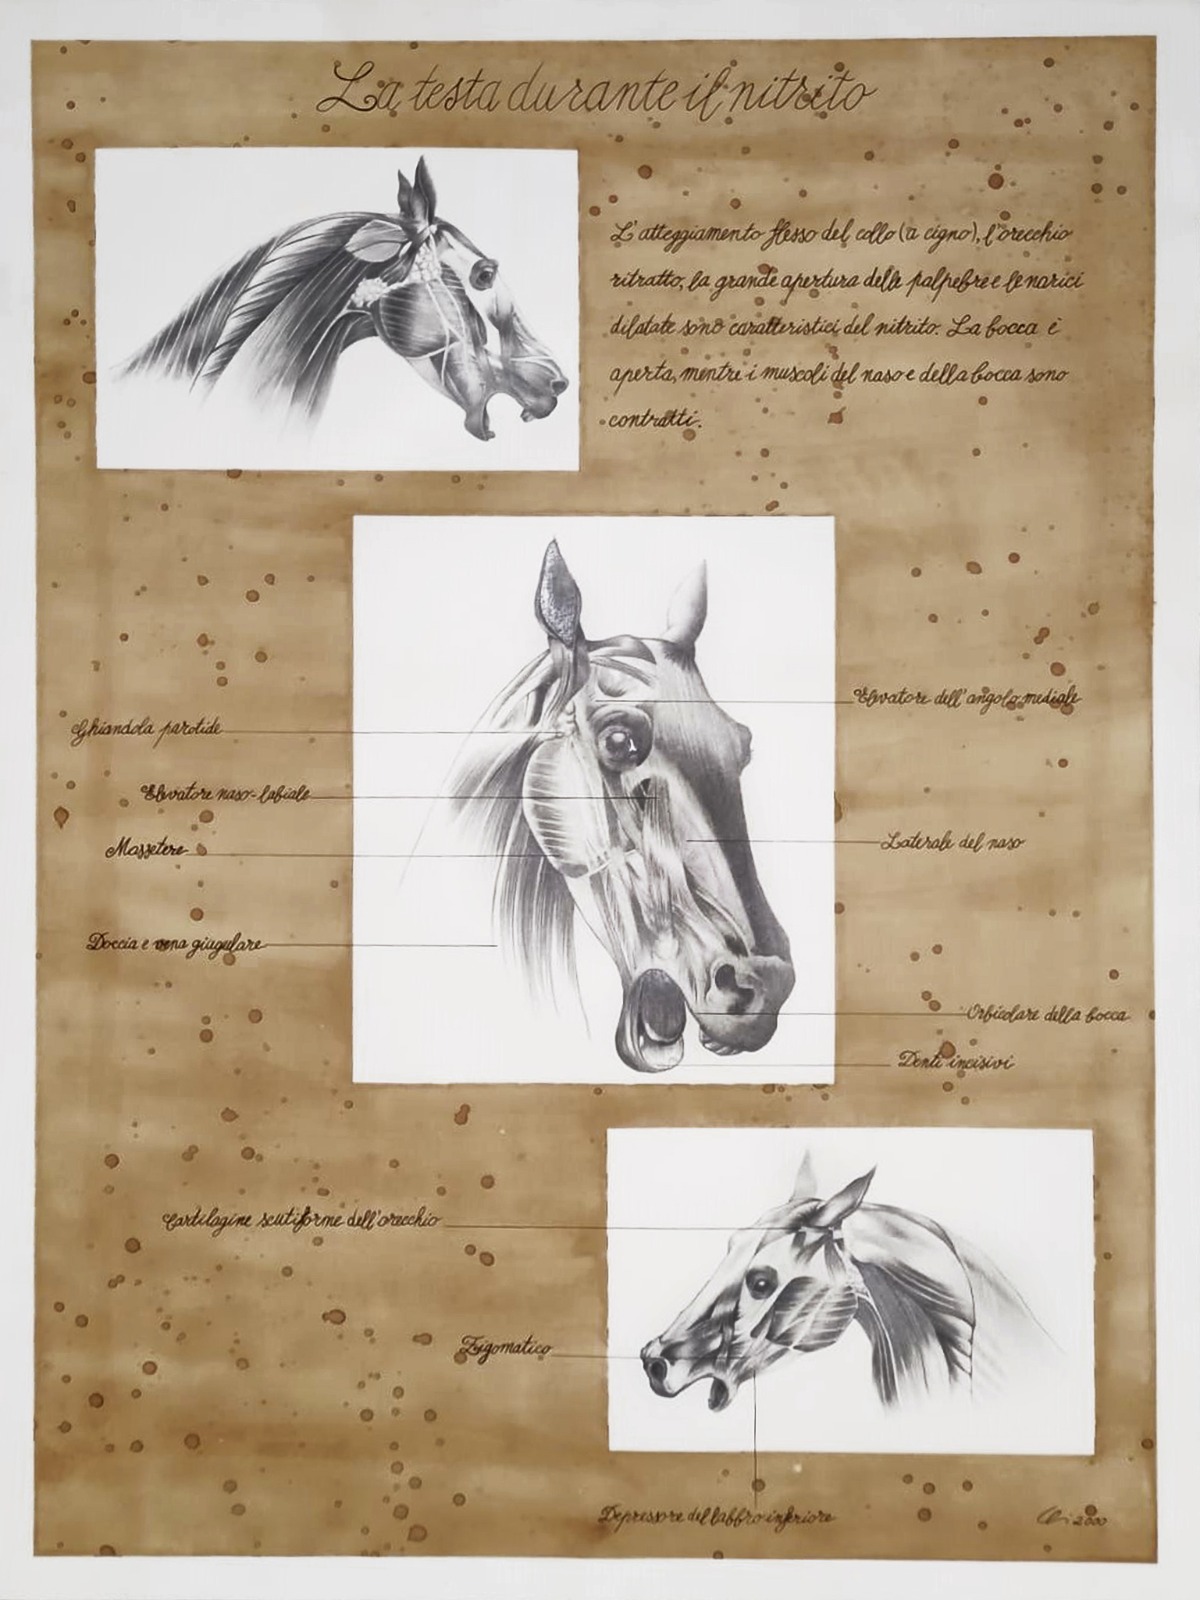 La testa durante il nitrito
L'atteggiamento flesso del collo (a cigno), l'orecchio
ritratto, la grande apertura delle palpebre e le narici
dilatate sono caratteristici del nitrito. La bocca è
aperta, mentre i muscoli del naso e della bocca sono
contratti.
Elevatore dell'angolo mediale
Ghiandola parotide
Elevatore naso-labiale
Massetere
Laterale del naso
Doccia e vena giugulare
Orbicolare della bocca
Denti incisivi
Cartilagine scutiforme dell'orecchio
Zigomatico
Depressore del labbro inferiore
2000